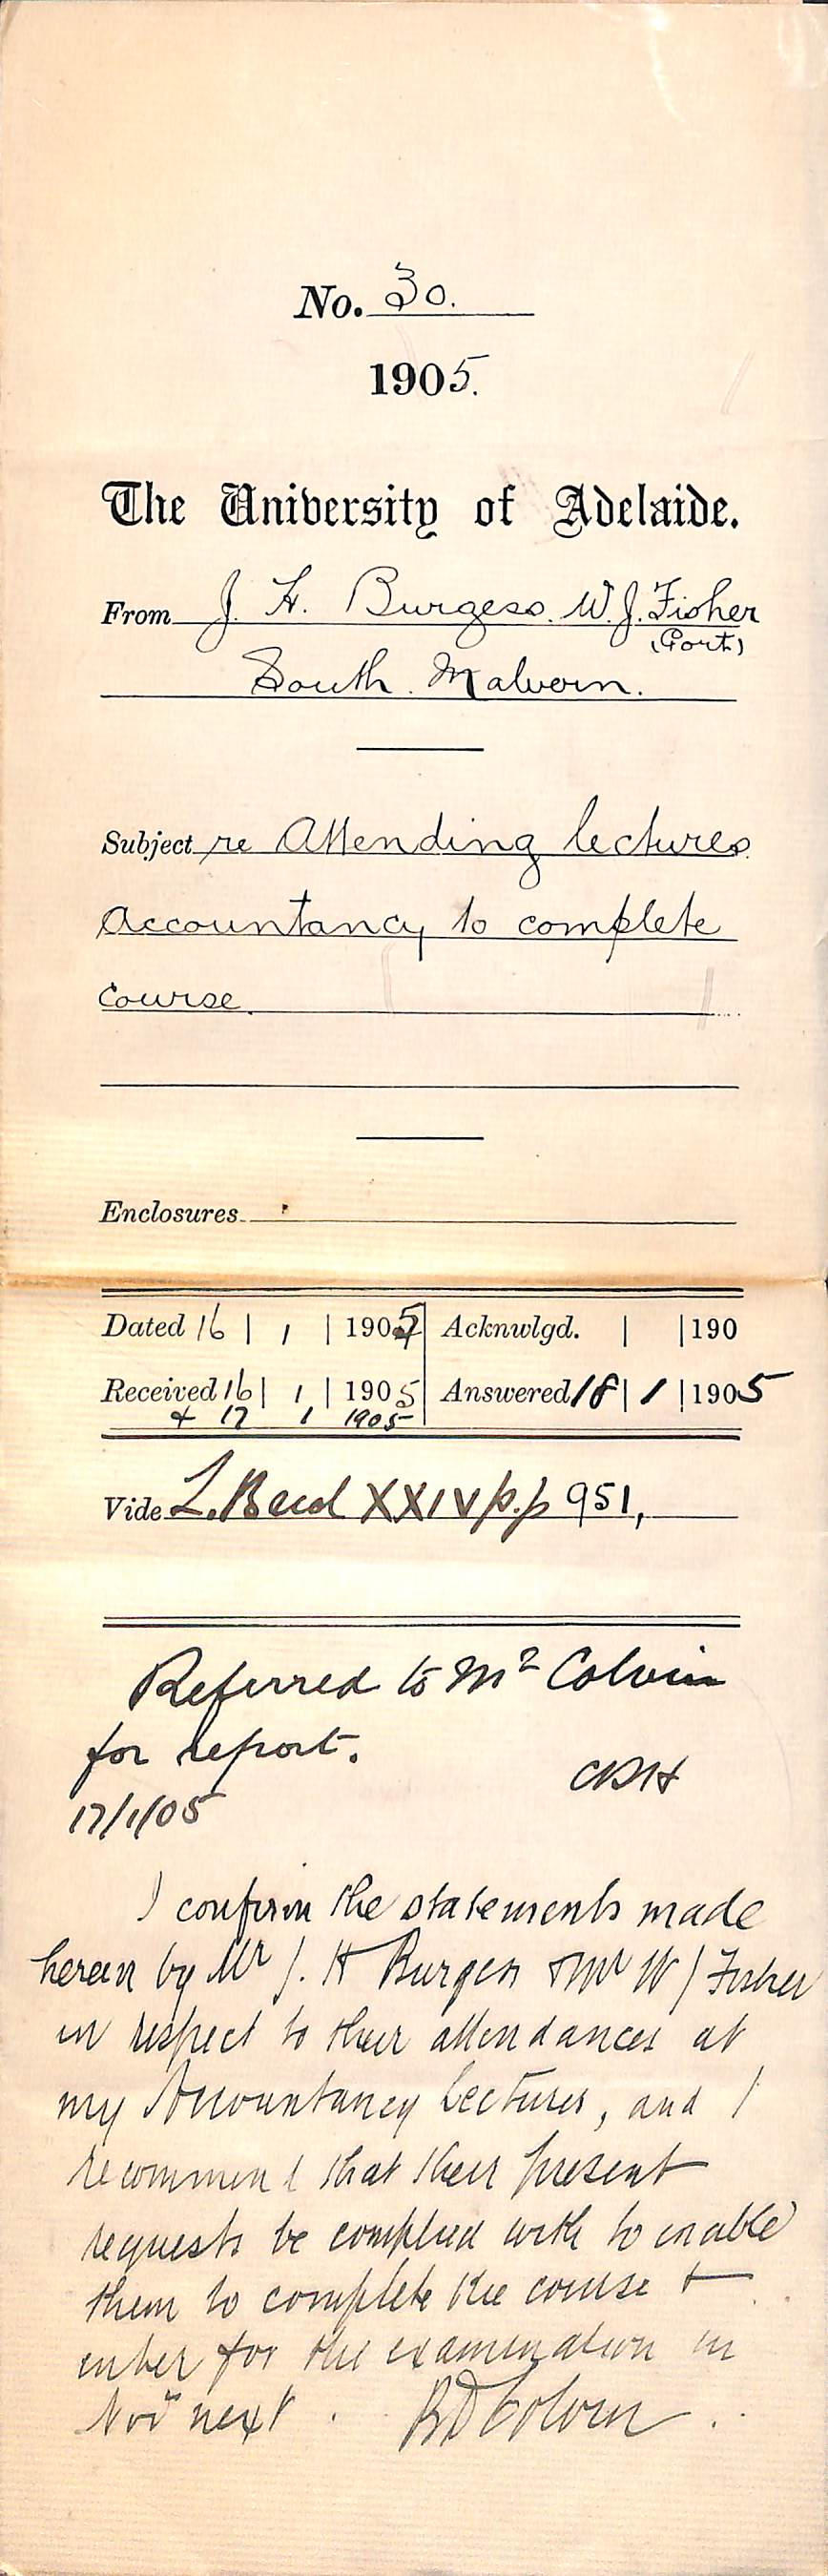 No. 30.
1905.
The University of Adelaide.
From J. H. Burgess. W. J. Fisher
(Port)
South Malvern.
Subject re Attending lectures
Accountancy to complete
Course.
Enclosures
Dated 16 | 1 | 1905 Acknwlgd. | |190
Received 16 | 1 | 1905 Answered 18 | 1 | 1905
& 17 1 1905
Vide XXIV p.p 951,
Referred to Mr Colvin
for report.
CRH
17/1/05
I confirm the statements made
herein by Mr J. H Burgess & Mr W J Fisher
in respect to their attendances at
my Accountancy Lectures, and I
recommend that their present
requests be complied with to enable
them to complete the course &
enter for the examination in
Novr next. RD Colvin